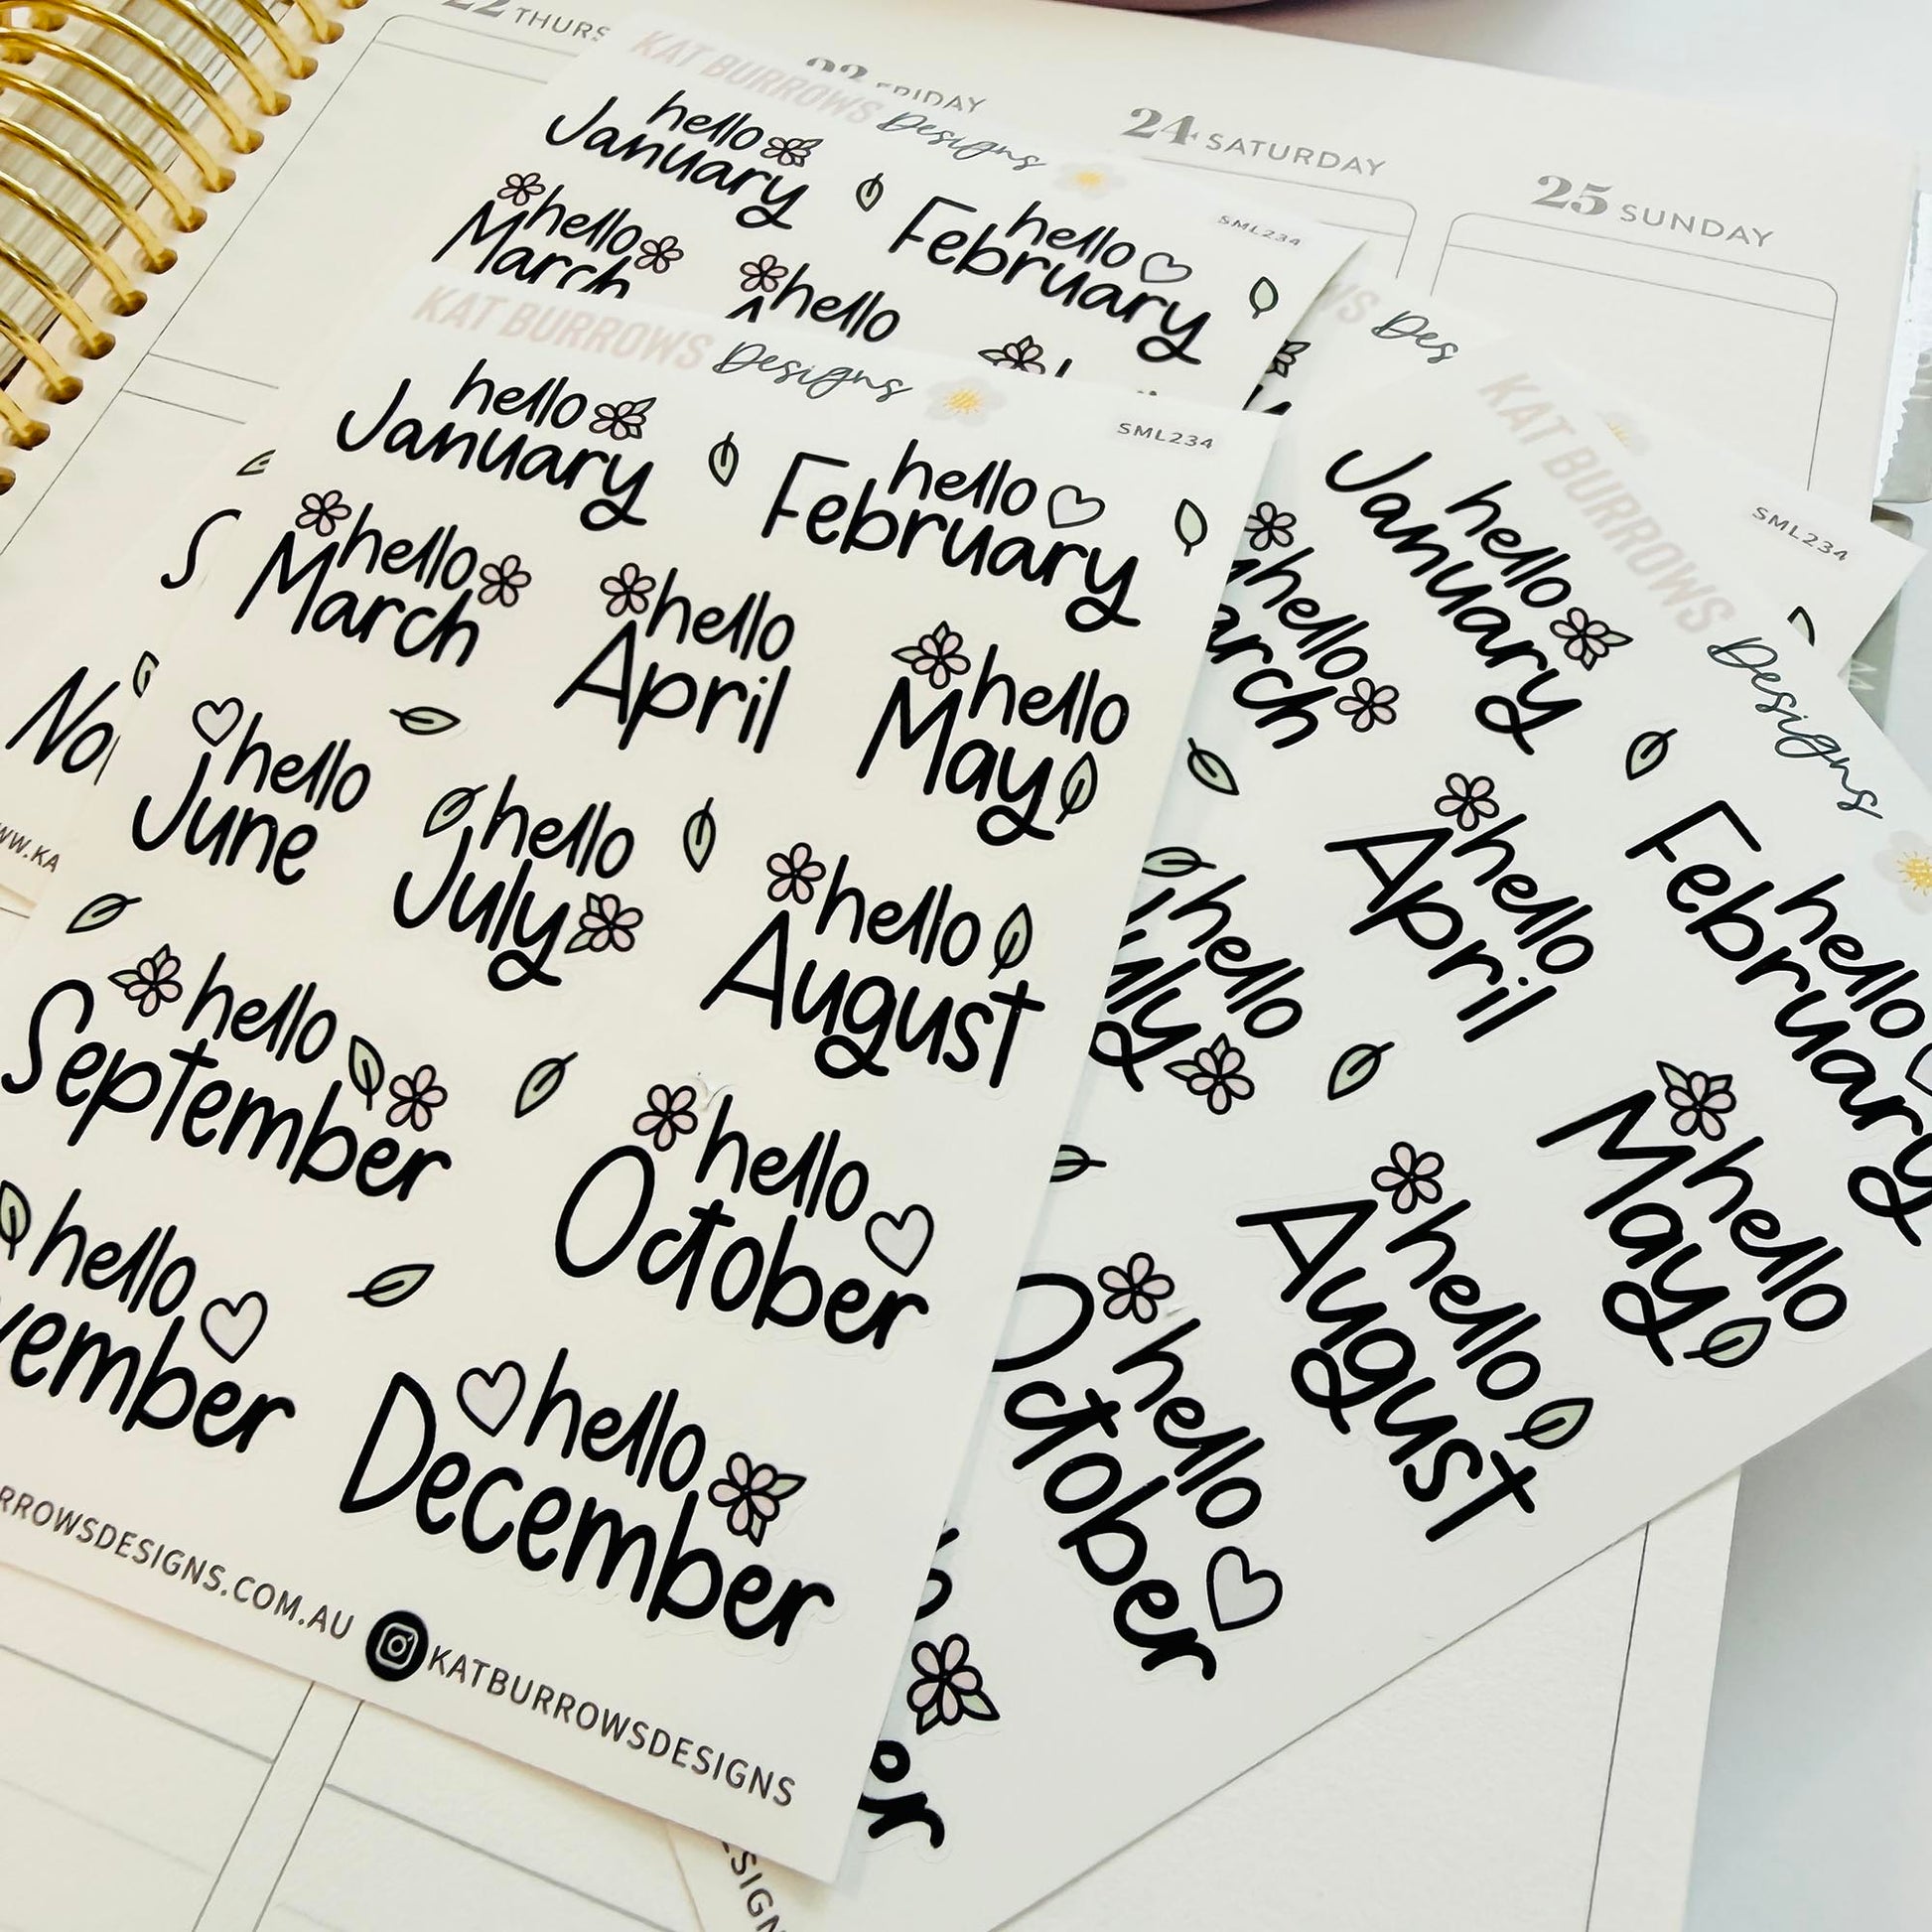 22 THURS
23 FRIDAY
24 SATURDAY
25 SUNDAY
KAT BURROWS Designs
SML234
hello January
hello February
hello March
hello
KAT BURROWS Designs
SML234
hello January
hello February
hello March
hello April
hello May
hello June
hello July
hello August
hello September
hello October
hello November
hello December
RROWSDESIGNS.COM.AU KATBURROWSDESIGNS
S
No
WW.KA
WS Des
SML234
KAT BURROWS Designs
hello January
hello February
hello arch
hello April
hello May
hello uly
hello August
hello October
er